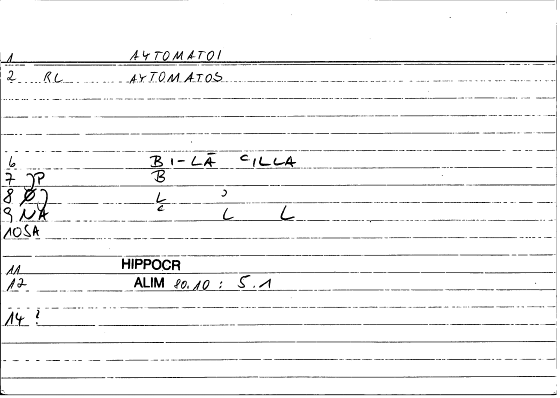 1 AYTOMATOI
2 RL AYTOMATOS
6 BI-LĀ CILLA
7 P B
8 L ,
9 NA L L
10 SA
11 HIPPOCR
12 ALIM 80.10 : 5.1
14 ?